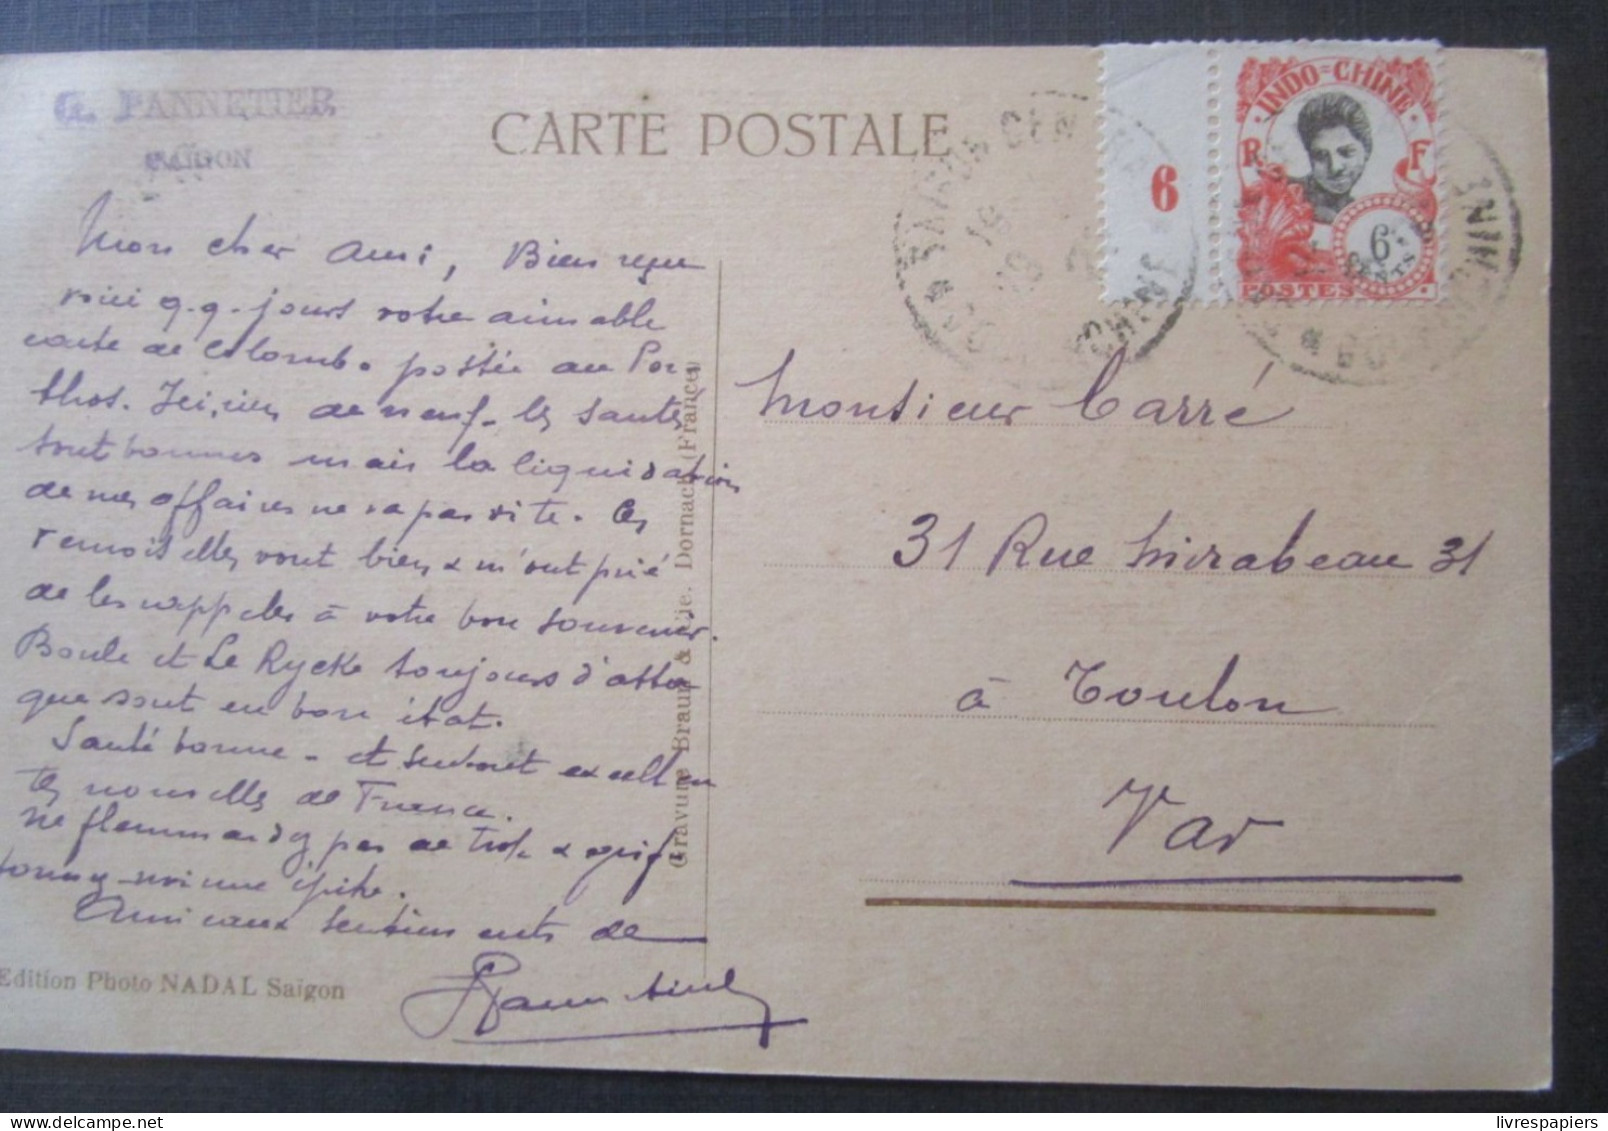 G. PANNETIER
SAIGON
CARTE POSTALE
SAIGON CENTRAL
COCHINCHINE
6
INDO-CHINE
R F
6
CENTS
POSTES
Mon cher ami, Bien reçu
voici q.q. jours votre aimable
carte de Colombo postée au Por-
thos. Ici, rien de neuf - les santés
sont bonnes mais la liquidation
de mes affaires ne va pas vite. Les
demoiselles vont bien & m'ont prié
de les rappeler à votre bon souvenir.
Boule et Le Rycke toujours d'atta
que sont en bon état.
Santé bonne - et surtout excellen
tes nouvelles de France.
Ne flemmardez pas de trop & grif-
fonnez-moi une épître.
Amicaux sentiments de
Pannetier
Edition Photo NADAL Saïgon
Gravure Braun & Cie. Dornach (France)
Monsieur Carré
31 Rue Mirabeau 31
à Toulon
Var
livrespapiers